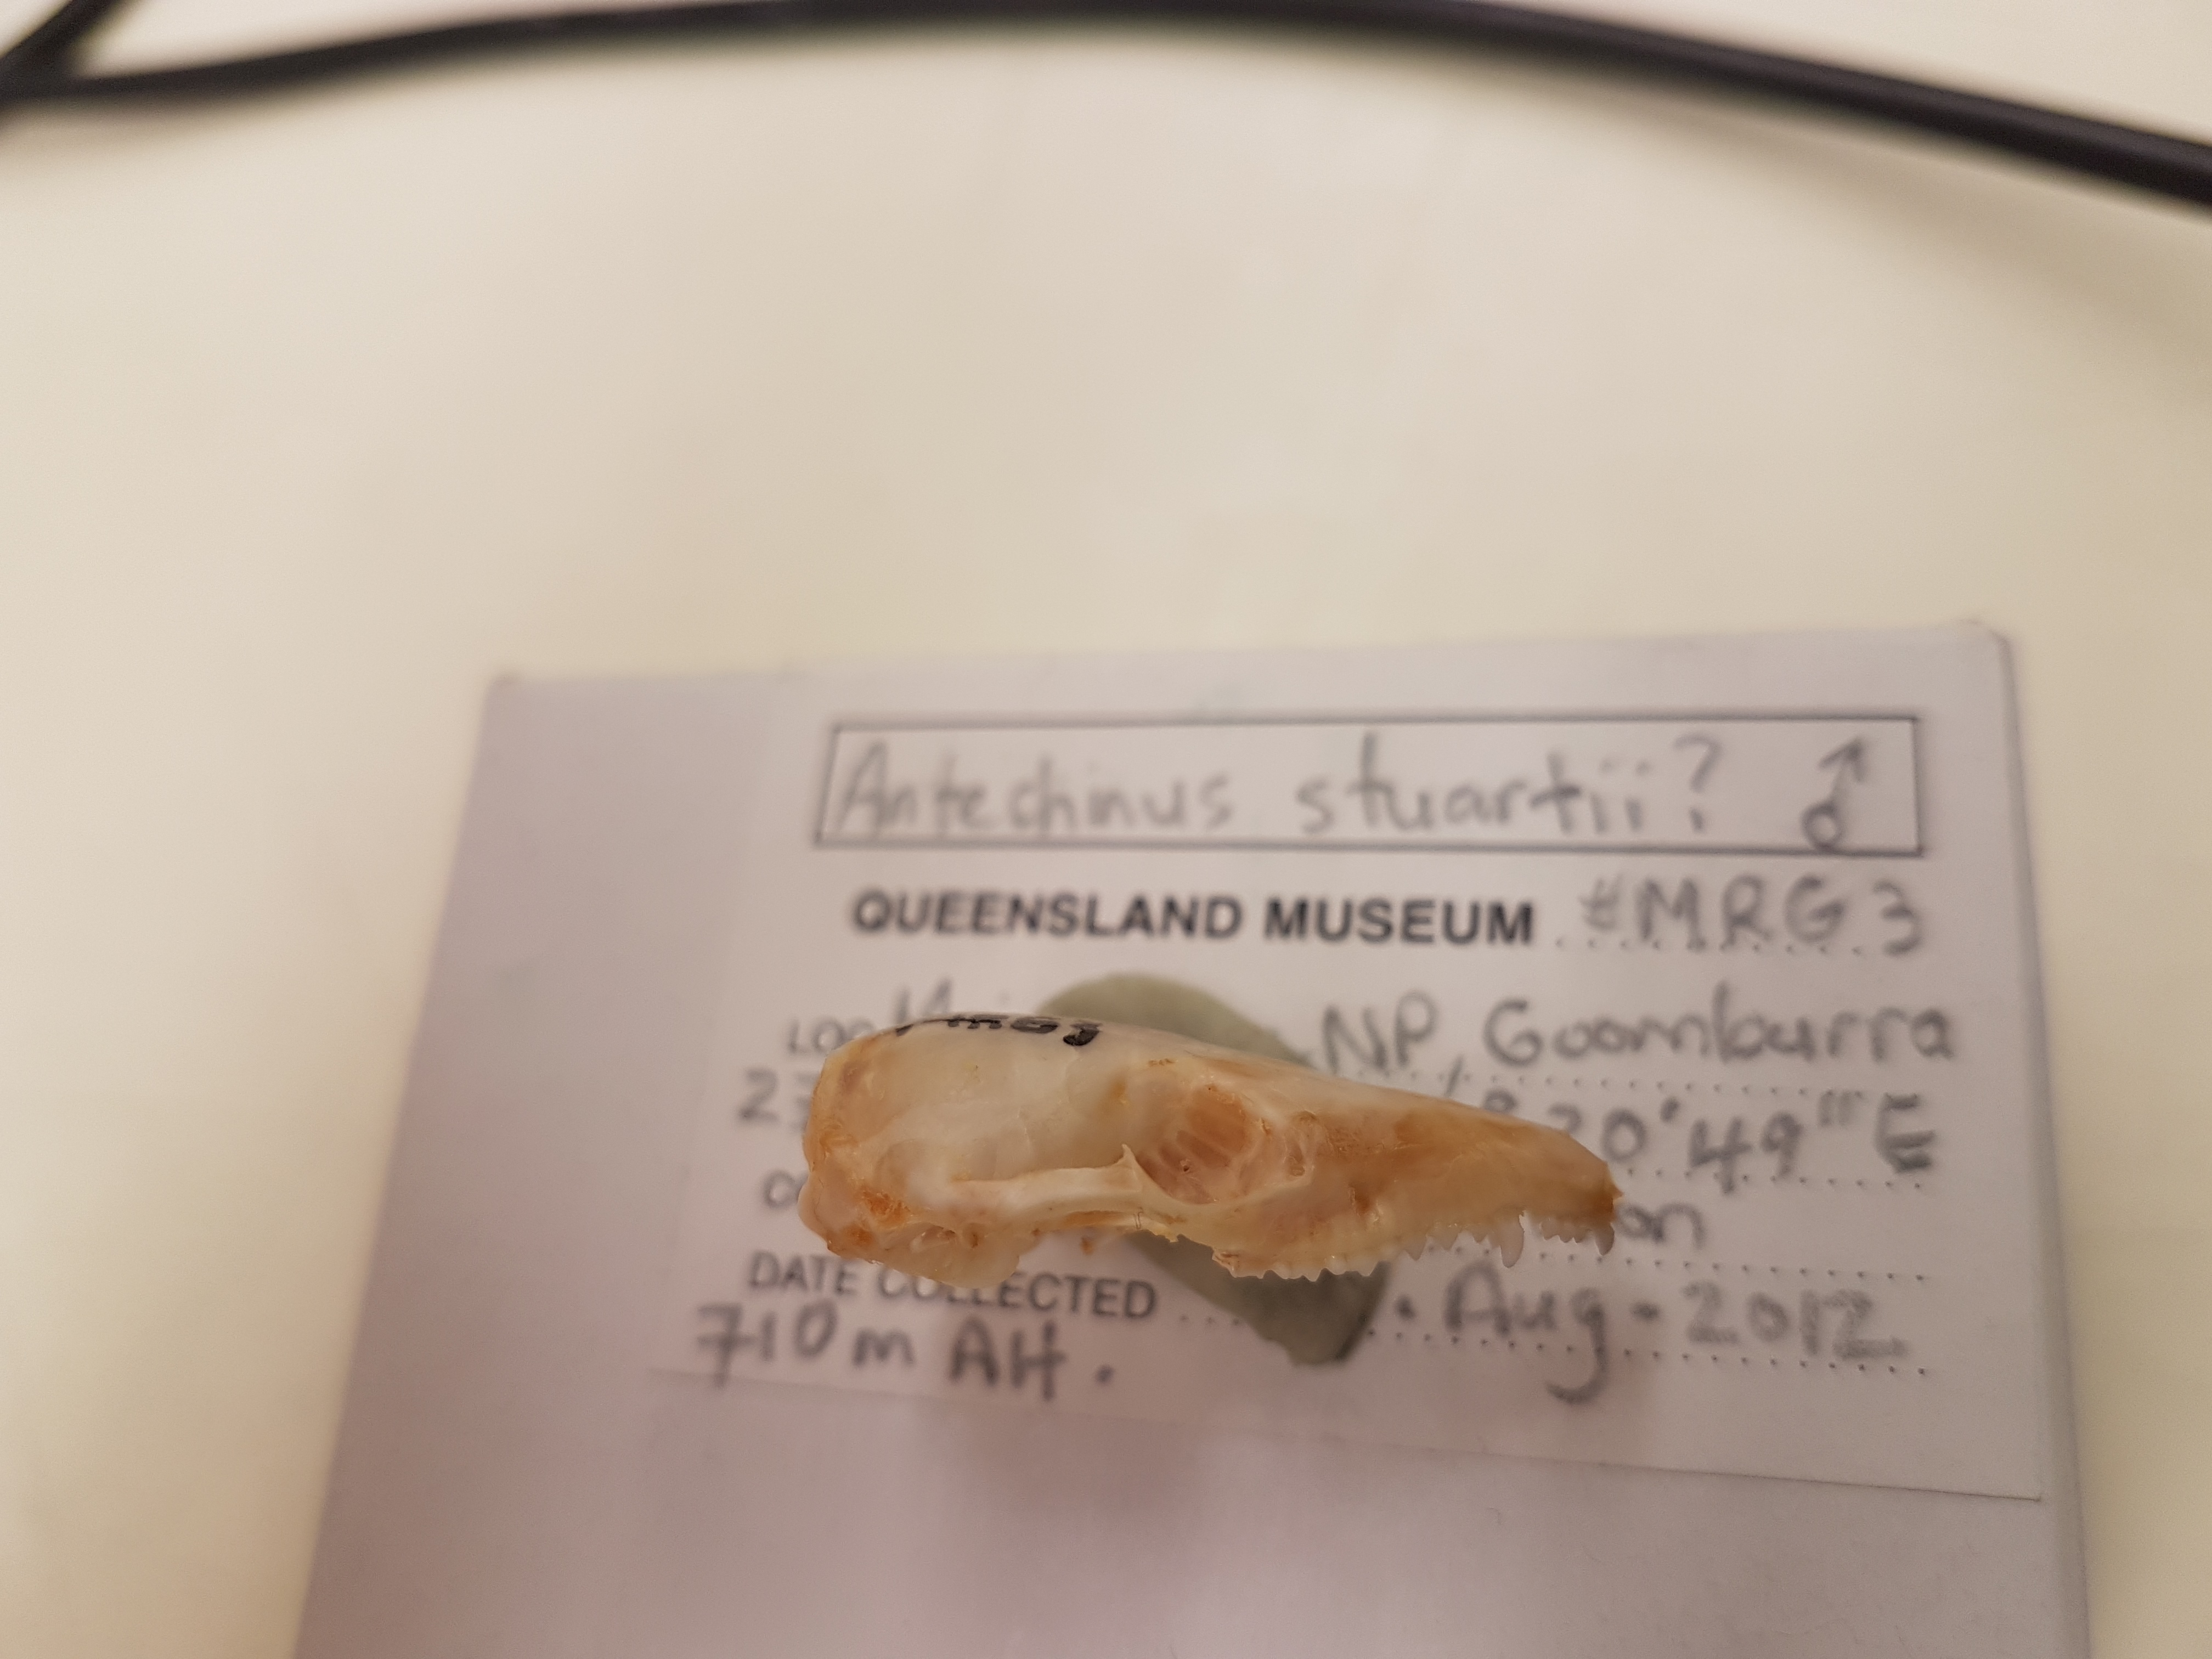 Antechinus stuartii? ♂
QUEENSLAND MUSEUM #MRG3
MRG3
NP, Goomburra
20'49"E
DATE COLLECTED Aug-2012
710m AH.